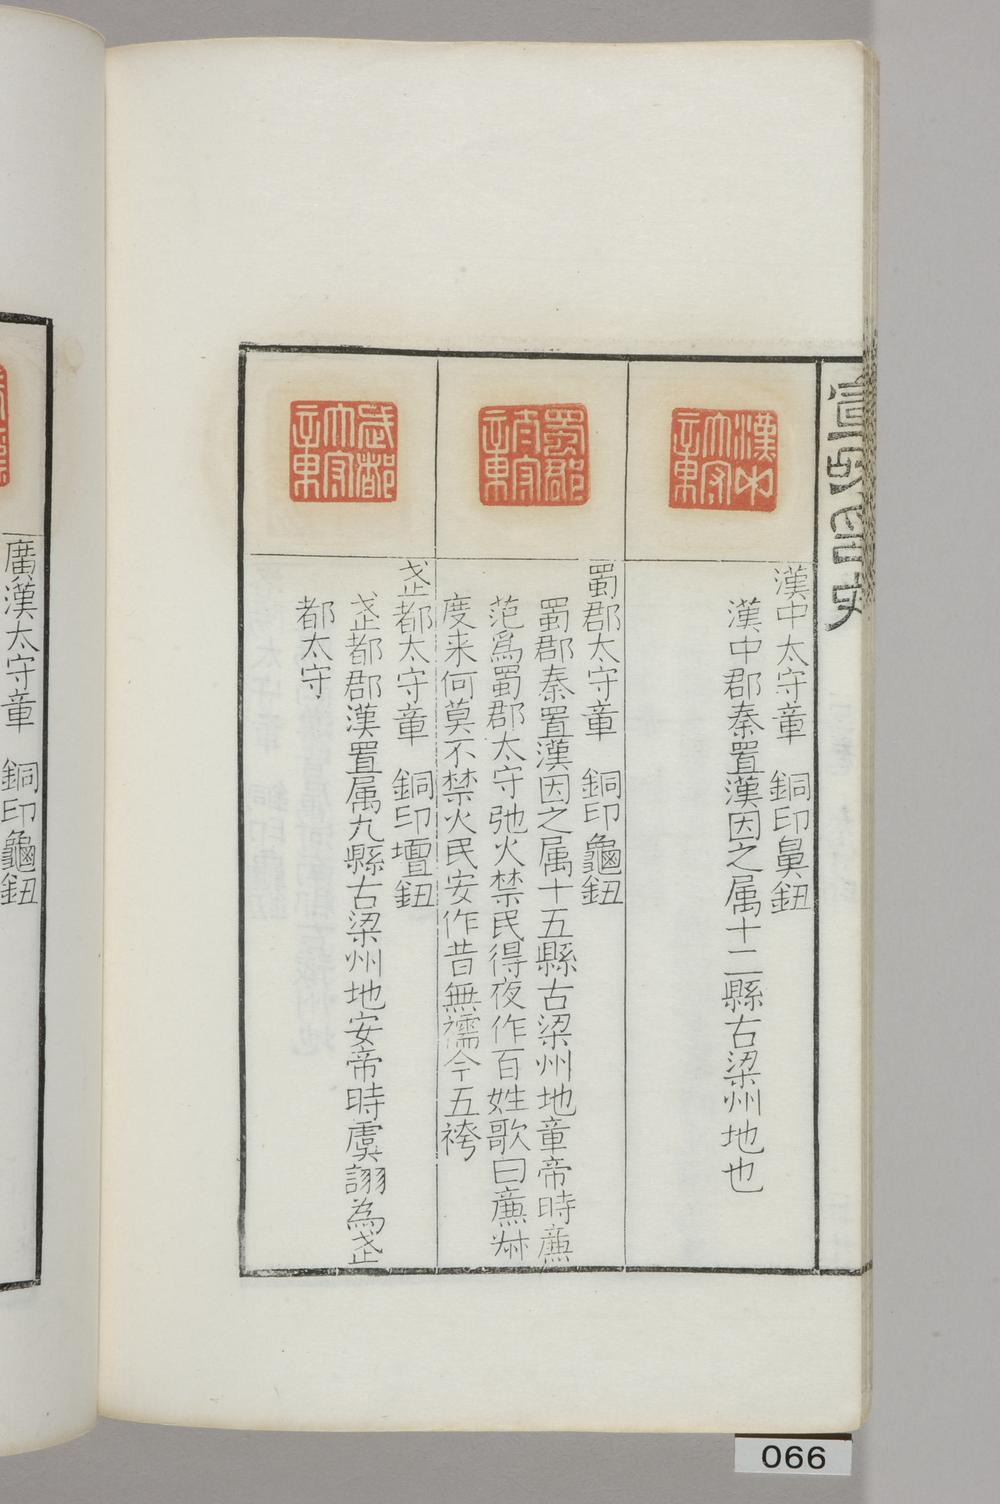 宣和印史
漢中太守章
漢中太守章　銅印鼻鈕
漢中郡秦置漢因之属十二縣古梁州地也
蜀郡太守章
蜀郡太守章　銅印龜鈕
蜀郡秦置漢因之属十五縣古梁州地章帝時廉
范為蜀郡太守弛火禁民得夜作百姓歌曰廉叔
度来何莫不禁火民安作昔無襦今五袴
武都太守章
武都太守章　銅印壇鈕
武都郡漢置属九縣古梁州地安帝時虞詡為武
都太守
廣漢太守章　銅印龜鈕
066